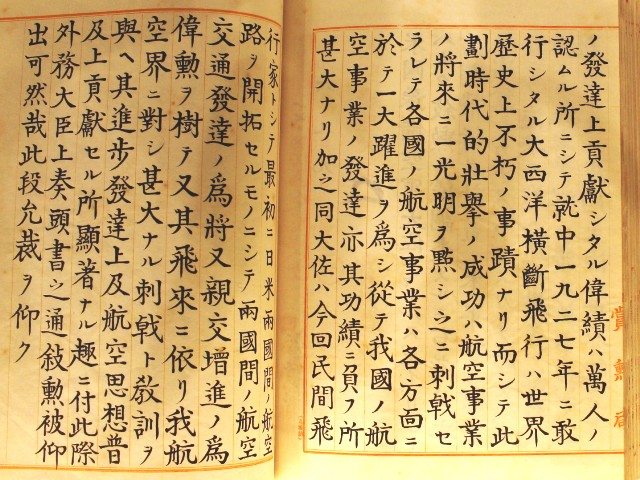 ノ發達上貢獻シタル偉績ハ萬人ノ
認ムル所ニシテ就中一九二七年ニ敢
行シタル大西洋橫斷飛行ハ世界
歷史上不朽ノ事蹟ナリ而シテ此
劃時代的壯擧ノ成功ハ航空事業
ノ將來ニ一光明ヲ點シ之ニ刺戟セ
ラレテ各國ノ航空事業ハ各方面ニ
於テ一大躍進ヲ爲シ從テ我國ノ航
空事業ノ發達亦其功績ニ負フ所
甚大ナリ加之同大佐ハ今回民間飛
行家トシテ最初ニ日米兩國間ノ航空
路ヲ開拓セルモノニシテ兩國間ノ航空
交通發達ノ爲將又親交增進ノ爲
偉勳ヲ樹テ又其飛來ニ依リ我航
空界ニ對シ甚大ナル刺戟ト敎訓ヲ
與ヘ其進步發達上及航空思想普
及上貢獻セル所顯著ナル趣ニ付此際
外務大臣上奏頭書之通敍勳被仰
出可然哉此段允裁ヲ仰ク
賞勳局